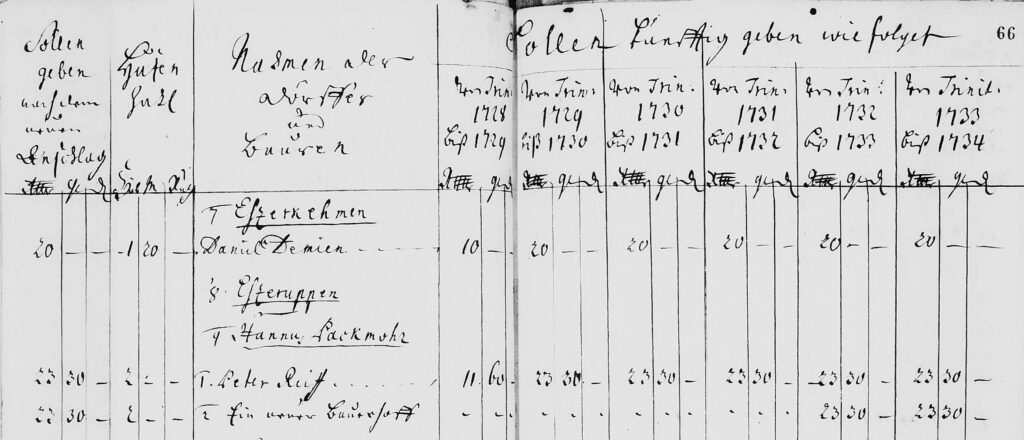 Sollen geben nach dem neuen Anschlag
Huben Zahl
Nahmen der Dörffer und Bauren
Sollen künfftig geben wie folget
66
Von Trin: 1728 biß 1729
Von Trin: 1729 biß 1730
Von Trin. 1730 biß 1731
Von Trin: 1731 biß 1732
Von Trin: 1732 biß 1733
Von Trinit. 1733 biß 1734
7 Eszerkehmen
20 — — 1 20 — Daniel Demien 10 — 20 — — 20 — — 20 — — 20 — — 20 — —
8. Eszeruppen
9 Hannus Packmohr
23 30 — 2 — — 1. Peter Reiff 11 60 — 23 30 — 23 30 — 23 30 — 23 30 — 23 30 —
22 30 — 2 — — 2 Ein neuer Bauerhoff - - - - - - - - - - 23 30 — 23 30 —